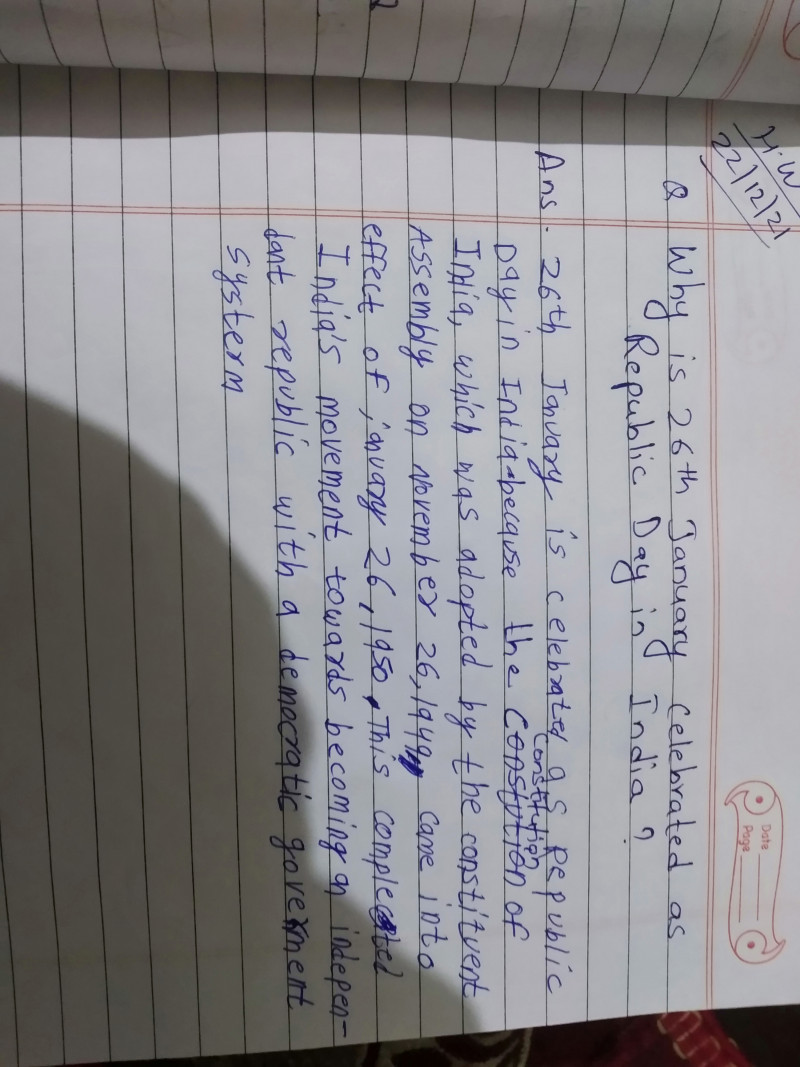 H.W
22/12/21
Date
Page
Q Why is 26th January celebrated as
Republic Day in India?
Ans. 26th January is celebrated as Republic
Day in India because the Constitution of
India, which was adopted by the constituent
Assembly on november 26, 1949, came into
effect of january 26, 1950. This completed
India's movement towards becoming an indepen-
dant republic with a democratic government
systerm